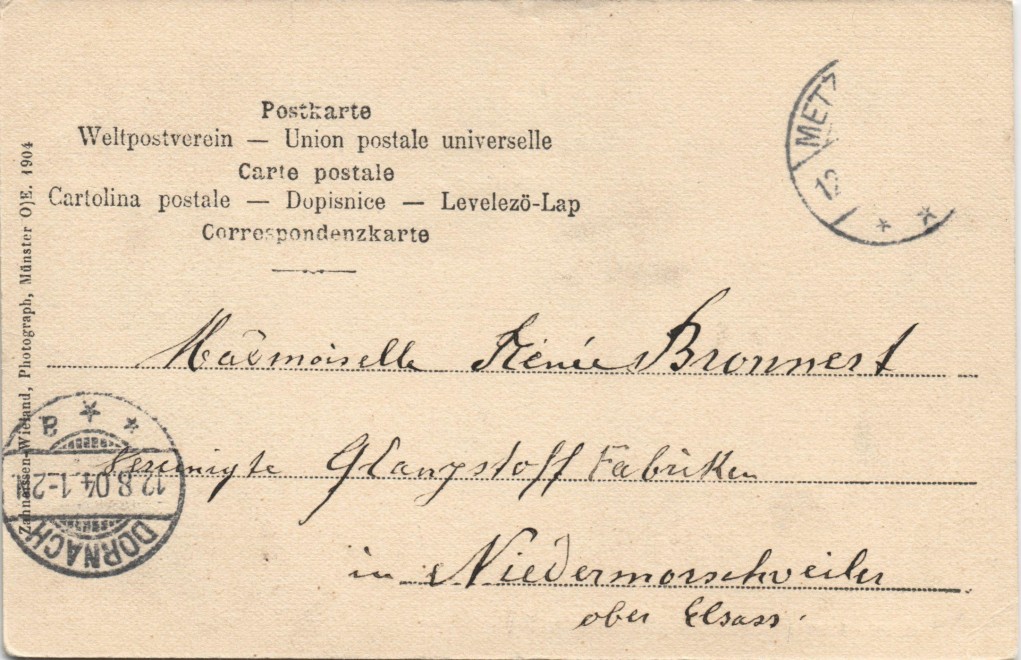 Postkarte
Weltpostverein — Union postale universelle
Carte postale
Cartolina postale — Dopisnice — Levelezö-Lap
Correspondenzkarte
Zahnaissen-Wieland, Photograph, Münster O|E. 1904
METZ
12
Mademoiselle Rénée Bronnert
Vereinigte Glanzstoff Fabriken
in Niedermorschweiler
ober Elsass.
a
12.8.04 1-2
DORNACH